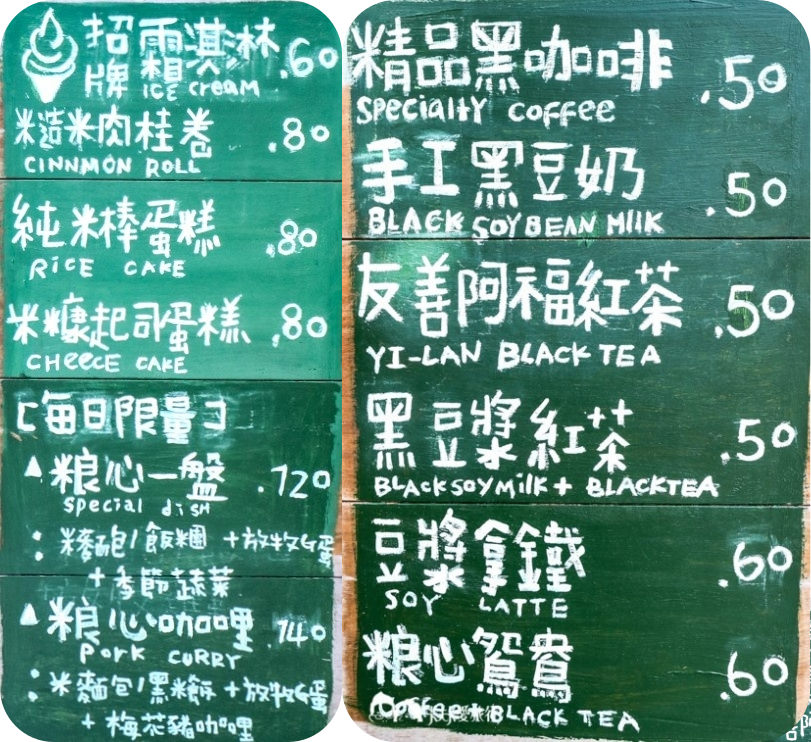 招牌霜淇淋 .60
ICE CREAM
糙米肉桂卷 .80
CINNMON ROLL
純米棒蛋糕 .80
RICE CAKE
米糠起司蛋糕 .80
CHEECE CAKE
[每日限量]
▲粮心一盤 .120
special dish
飯糰+放牧G蛋
+季節蔬菜
▲粮心咖哩 .140
Pork CURRY
:米麵包/黑米飯+放牧G蛋
+梅花豬咖哩
精品黑咖啡 .50
Specialty coffee
手工黑豆奶 .50
BLACK SOYBEAN MilK
友善阿福紅茶 .50
YI-LAN BLACK TEA
黑豆漿紅茶 .50
BLACKSOYMilK+ BLACKTEA
豆漿拿鐵 .60
SOY LATTE
粮心鴛鴦 .60
Coffee+BLACK TEA